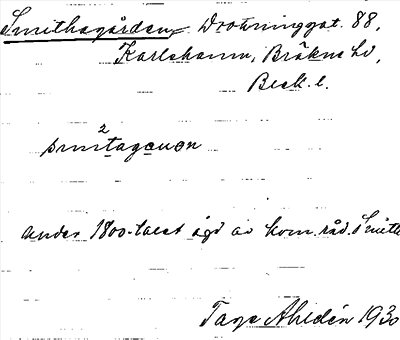 Smithsgården Drottninggat. 88,
Karlshamn, Bräkne hd,
Blek. l.
smi²tagɑ̨ɳ
under 1800-talet ägd av kom.råd. Smith
Tage Ahldén 1930